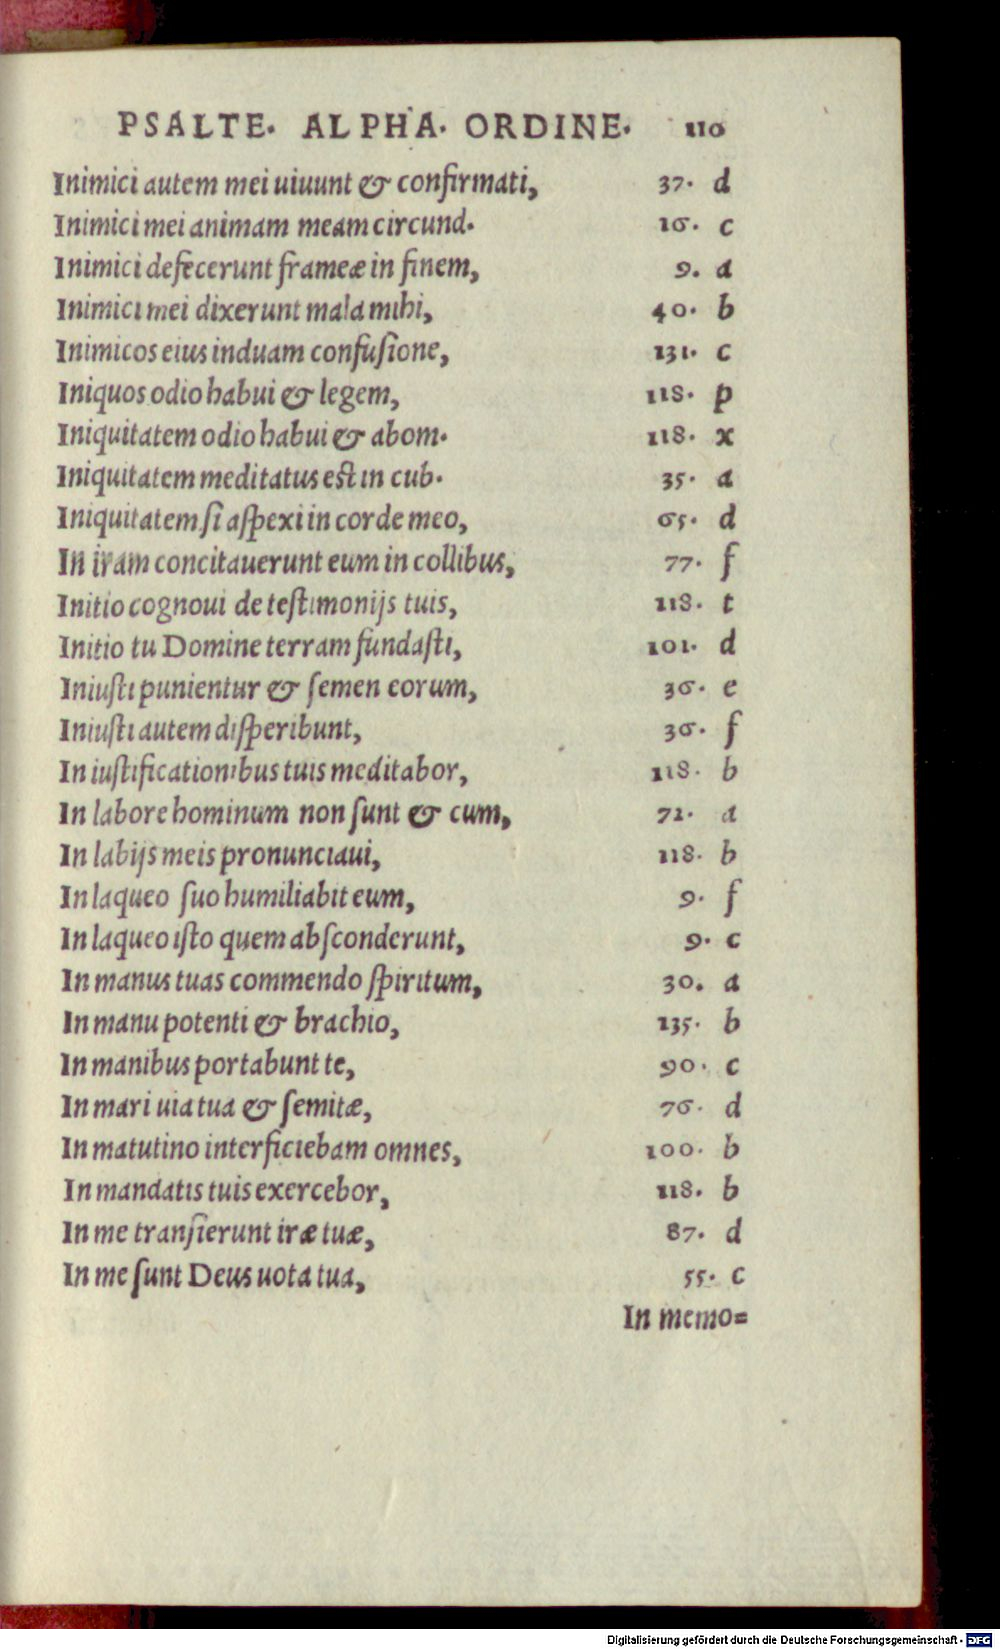 PSALTE. ALPHA. ORDINE. 110
Inimici autem mei uiuunt & confirmati, 37. d
Inimici mei animam meam circund. 16. c
Inimici defecerunt frameæ in finem, 9. a
Inimici mei dixerunt mala mihi, 40. b
Inimicos eius induam confuſione, 131. c
Iniquos odio habui & legem, 118. p
Iniquitatem odio habui & abom. 118. x
Iniquitatem meditatus eſt in cub. 35. a
Iniquitatem ſi aſpexi in corde meo, 65. d
In iram concitauerunt eum in collibus, 77. f
Initio cognoui de teſtimonijs tuis, 118. t
Initio tu Domine terram fundaſti, 101. d
Iniuſti punientur & ſemen eorum, 36. e
Iniuſti autem diſperibunt, 36. f
In iuſtificationibus tuis meditabor, 118. b
In labore hominum non ſunt & cum, 72. a
In labijs meis pronunciaui, 118. b
In laqueo ſuo humiliabit eum, 9. f
In laqueo iſto quem abſconderunt, 9. c
In manus tuas commendo ſpiritum, 30. a
In manu potenti & brachio, 135. b
In manibus portabunt te, 90. c
In mari uia tua & ſemitæ, 76. d
In matutino interficiebam omnes, 100. b
In mandatis tuis exercebor, 118. b
In me tranſierunt iræ tuæ, 87. d
In me ſunt Deus uota tua, 55. c
In memo=
Digitalisierung gefördert durch die Deutsche Forschungsgemeinschaft - DFG